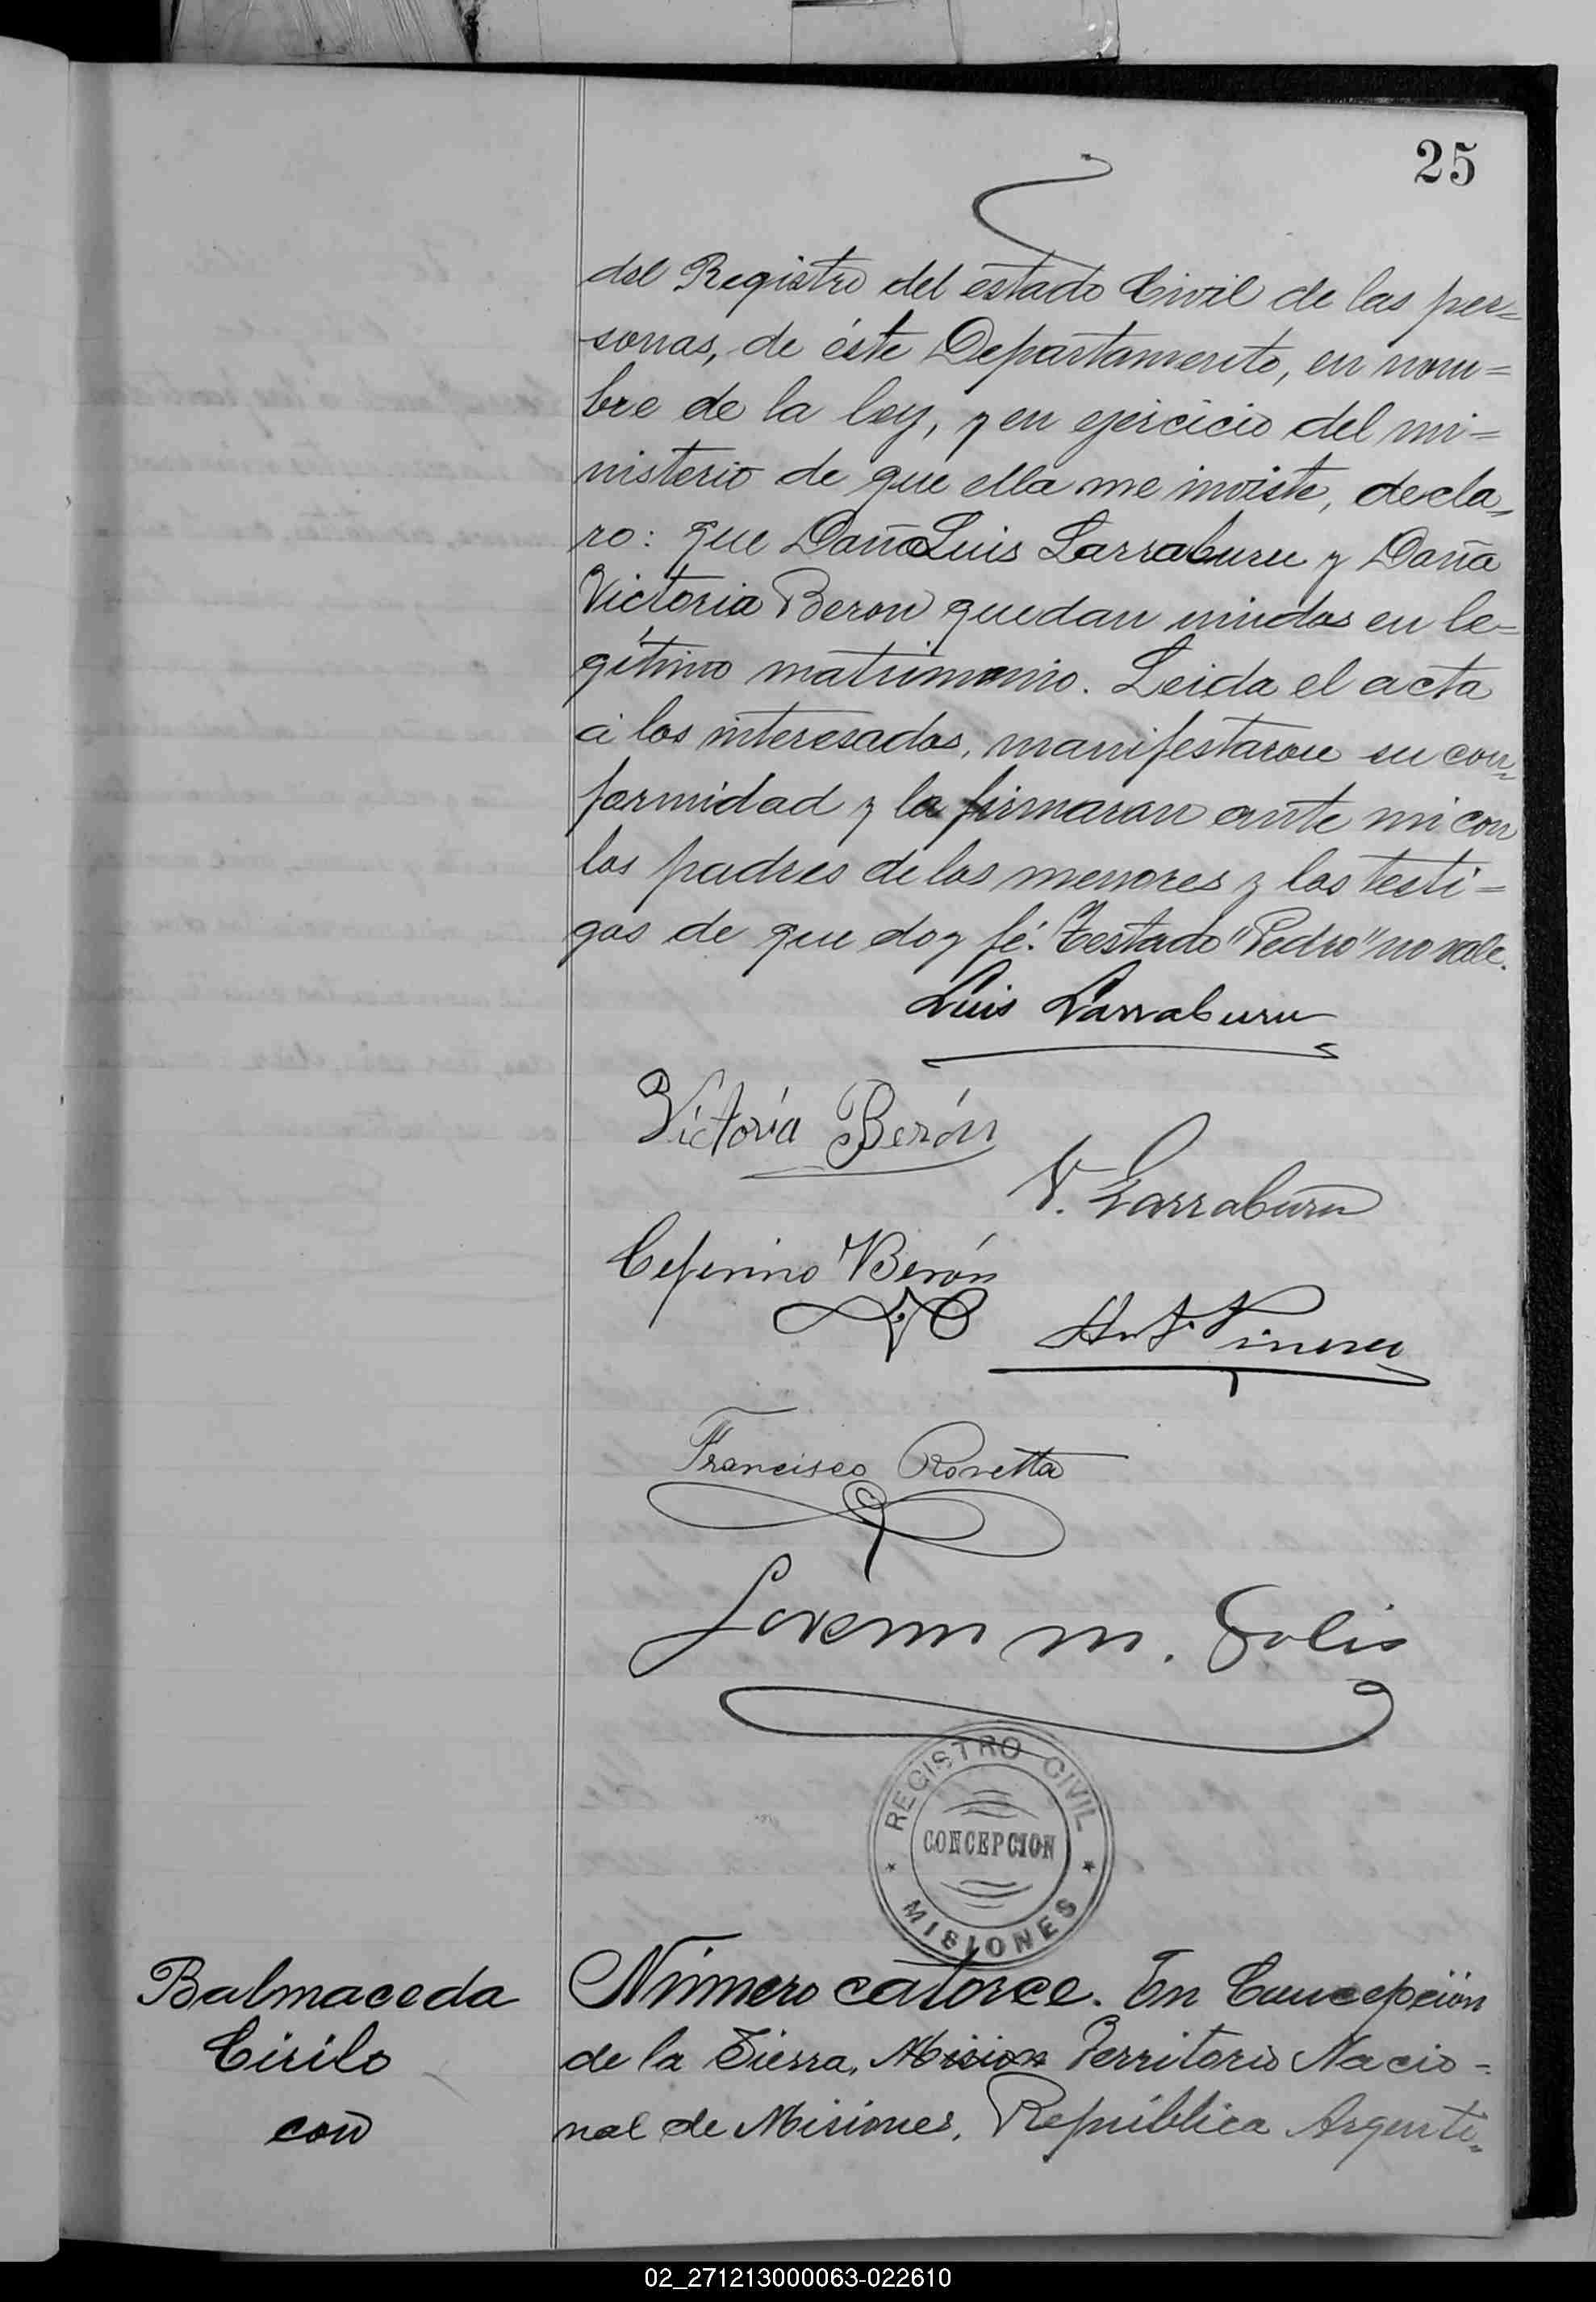 25
del Registro del estado Civil de las per=
sonas, de éste Departamento, en nom=
bre de la ley, y en ejercicio del mi=
nisterio de que ella me inviste, decla=
ro: que Doña Luis Larraburu y Doña
Victoria Beron quedan unidos en le=
gítimo matrimonio. Leida el acta
á los interesados, manifestaron su con=
formidad y la firmaran ante mi con
los padres de los menores y los testi=
gos de que doy fé. Testado "Pedro" no vale.
Luis Larraburu
Victoria Berón
V. Larraburu
Ceferino Berón
Francisco Rovetta
M. Solis
REGISTRO CIVIL
CONCEPCION
MISIONES
Balmaceda
Cirilo
con
Número catorce. En Concepción
de la Sierra, Mision Territorio Nacio=
nal de Misiones, República Argenti=
02_271213000063-022610